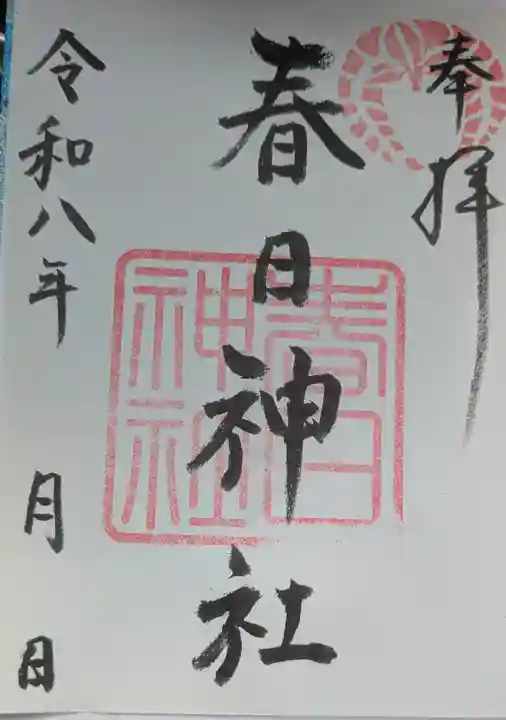 奉拝
春日神社
春日
神社
令和八年 月 日